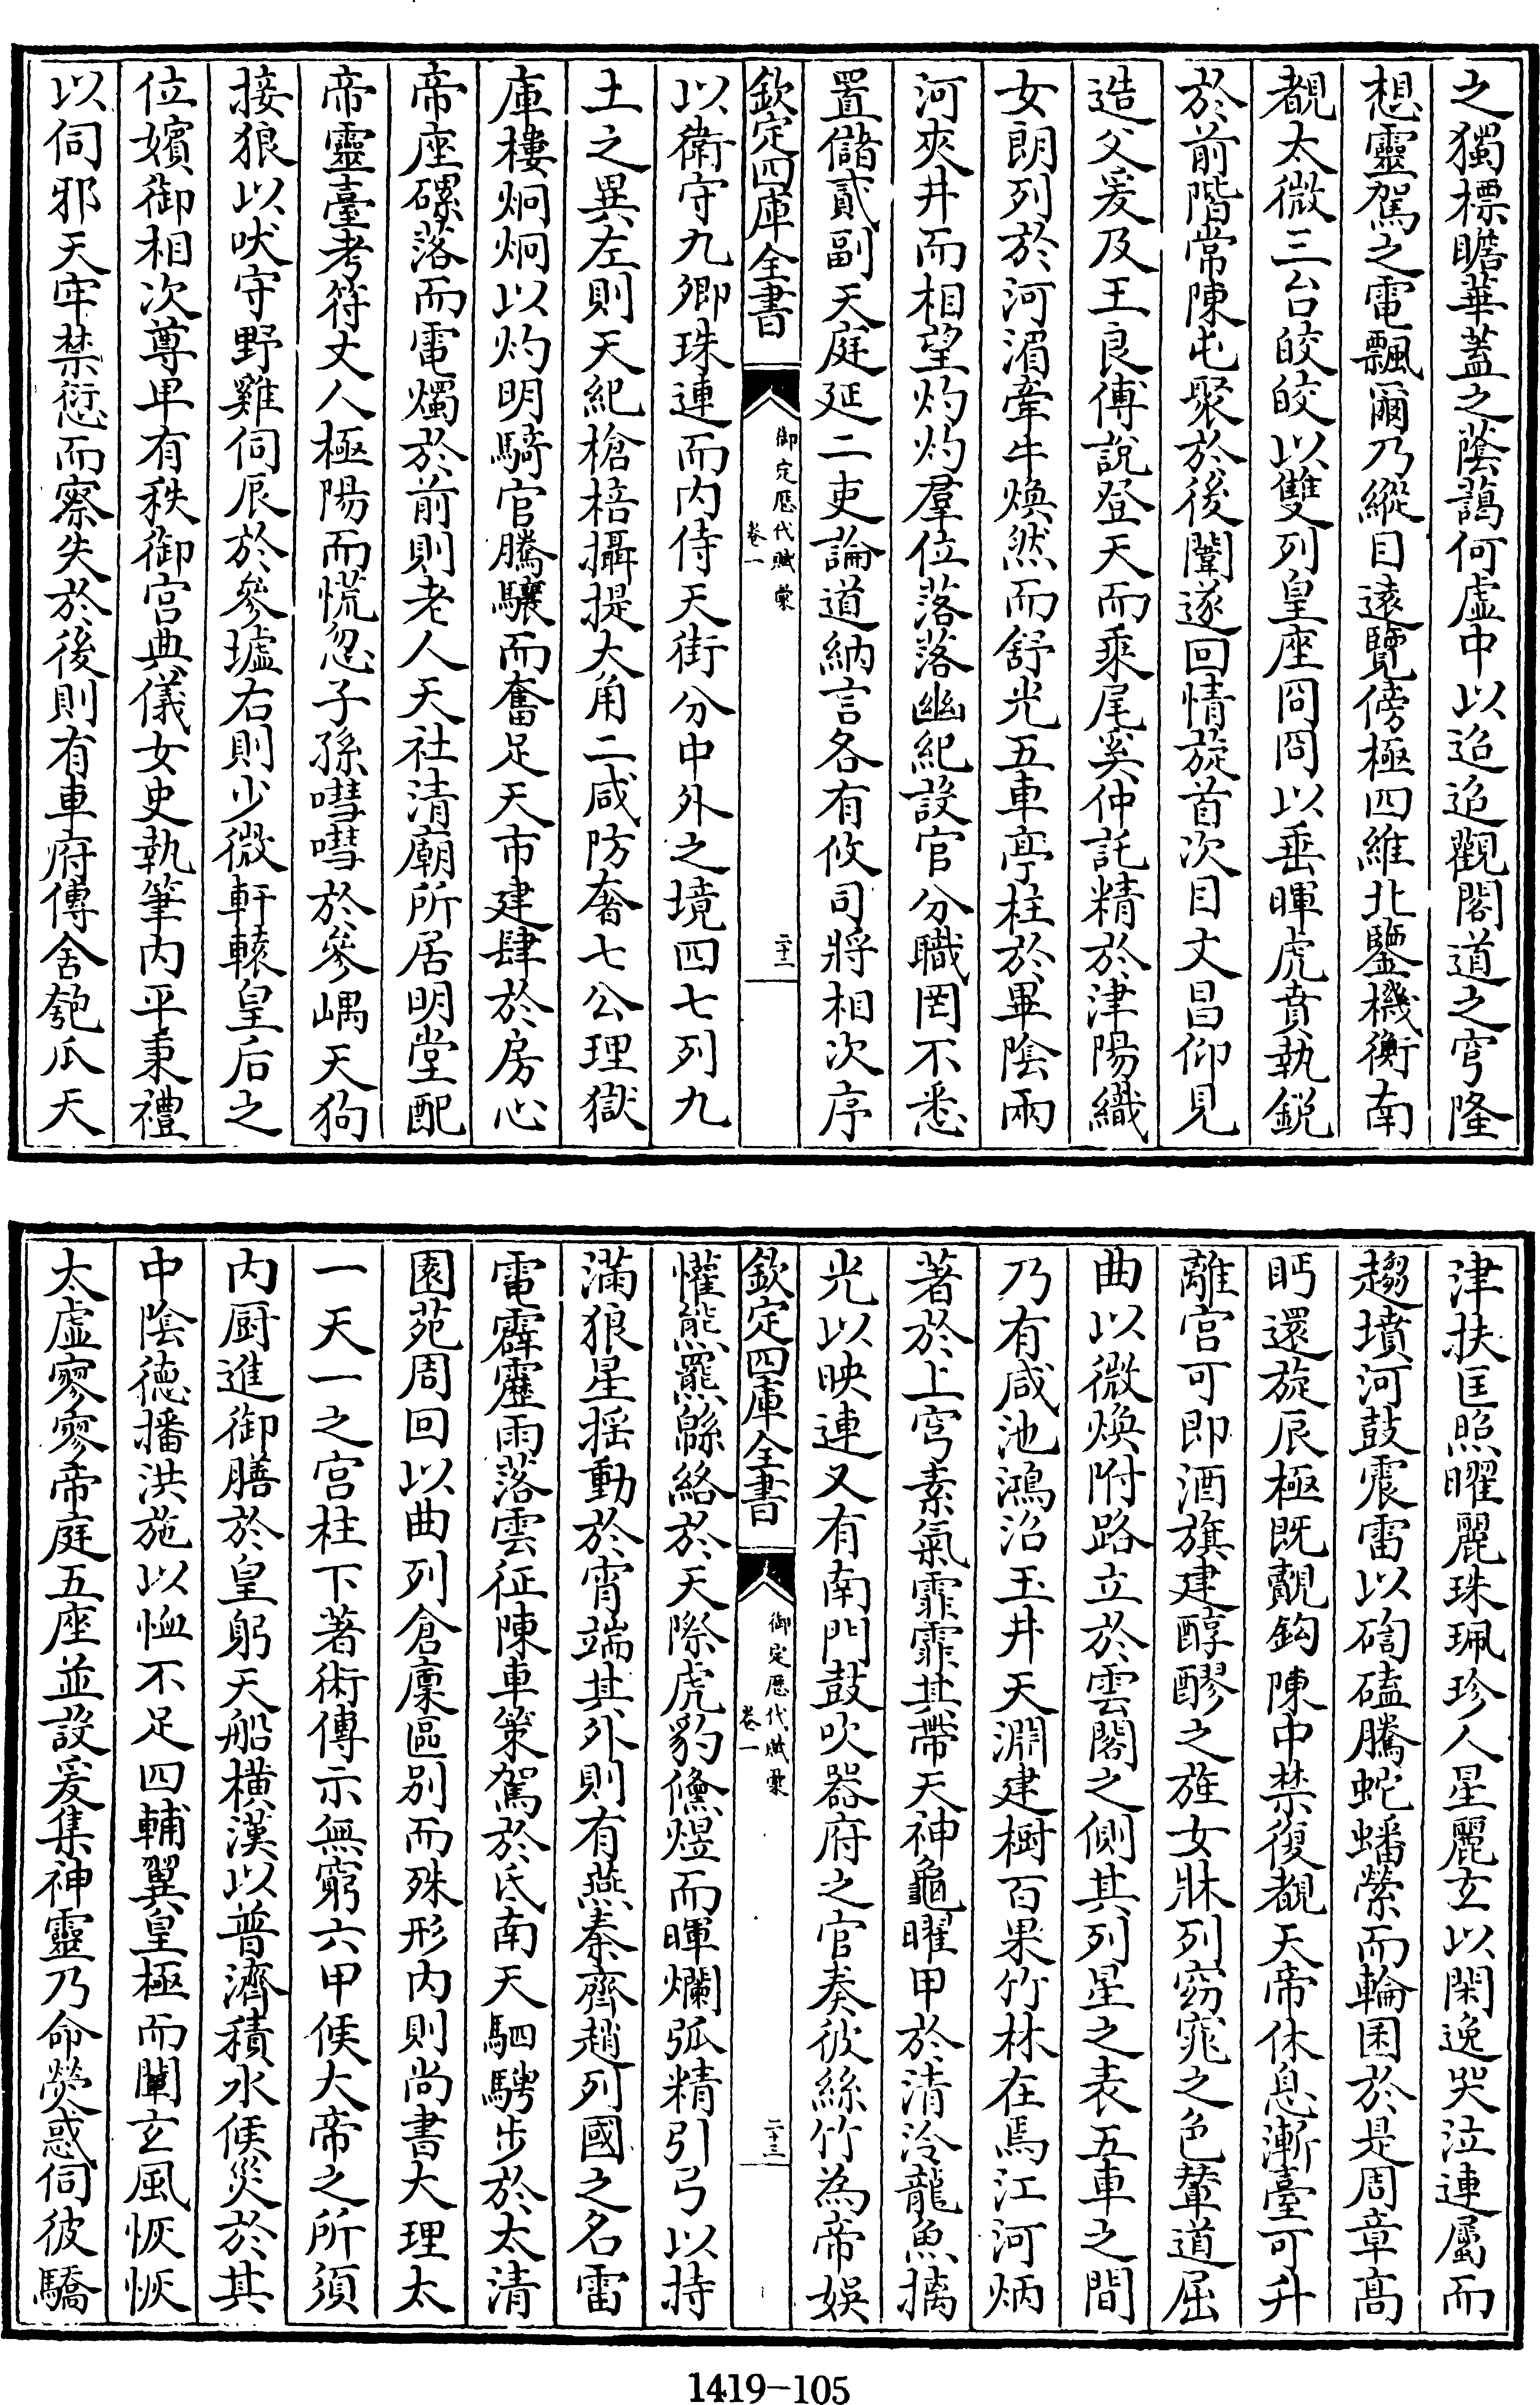 之獨標瞻華蓋之蔭藹何虛中以迢迢觀閣道之穹隆
想靈駕之電飄爾乃縱目遠覽傍極四維北鑒機衡南
覩太微三台皎皎以雙列皇座冏冏以垂暉虎賁執銳
於前階常陳屯聚於後闈遂回情旋首次目文昌仰見
造父爰及王良傅說登天而乘尾奚仲託精於津陽織
女朗列於河湄牽牛煥然而舒光五車亭柱於畢陰兩
河夾井而相望灼灼羣位落落幽紀設官分職罔不悉
置儲貳副天庭延二吏論道納言各有攸司將相次序
欽定四庫全書
御定歷代賦彙
卷一
二十二
以衛守九卿珠連而内侍天街分中外之境四七列九
土之異左則天紀槍棓攝提大角二咸防奢七公理獄
庫樓炯炯以灼明騎官騰驤而奮足天市建肆於房心
帝座磥落而電燭於前則老人天社清廟所居明堂配
帝靈臺考符丈人極陽而慌忽子孫嘒嘒於參嵎天狗
接狼以吠守野雞伺辰於參墟右則少微軒轅皇后之
位嬪御相次尊卑有秩御宮典儀女史執筆内平秉禮
以伺邪天牢禁愆而察失於後則有車府傳舍匏瓜天
津扶匡照曜麗珠珮珍人星麗玄以閑逸哭泣連屬而
趨墳河鼓震雷以硠磕騰蛇蟠縈而輪囷於是周章高
眄還旋辰極既覿鈎陳中禁復覩天帝休息漸臺可升
離宮可即酒旗建醇醪之旌女牀列窈窕之色輦道屈
曲以微煥附路立於雲閣之側其列星之表五車之間
乃有咸池鴻沼玉井天淵建樹百果竹林在焉江河炳
著於上穹素氣霏霏其帶天神龜曜甲於清泠龍魚摛
光以映連又有南門鼓吹器府之官奏彼絲竹為帝娛
欽定四庫全書
御定歷代賦彙
卷一
二十三
懽熊羆緜絡於天際虎豹儵煜而暉爛弧精引弓以持
滿狼星搖動於宵端其外則有燕秦齊趙列國之名雷
電霹靂雨落雲征陳車策駕於氐南天駟騁步於太清
園苑周回以曲列倉廩區别而殊形内則尚書大理太
一天一之宮柱下著術傳示無窮六甲候大帝之所須
内厨進御膳於皇躬天船横漢以普濟積水候災於其
中陰德播洪施以恤不足四輔翼皇極而闡玄風恢恢
太虛寥寥帝庭五座並設爰集神靈乃命熒惑伺彼驕
1419-105